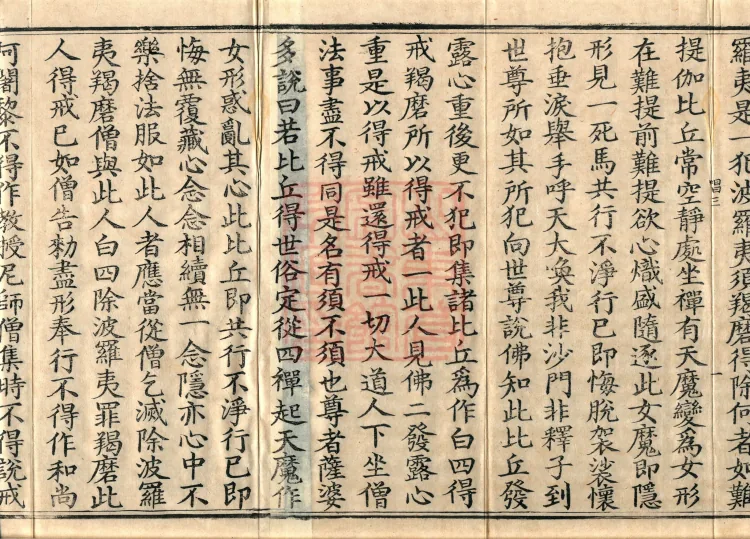 羅夷是一犯波羅夷須羯磨得除何者如難
提伽比丘常空靜處坐禪有天魔變爲女形
在難提前難提欲心熾盛隨逐此女魔即隱
形見一死馬共行不淨行已即悔脫袈裟懷
抱垂淚舉手呼天大喚我非沙門非釋子到
世尊所如其所犯向世尊說佛知此比丘發
露心重後更不犯即集諸比丘爲作白四得
戒羯磨所以得戒者一此人見佛二發露心
重是以得戒雖還得戒一切大道人下坐僧
法事盡不得同是名有須不須也尊者薩婆
多說曰若比丘得世俗定從四禪起天魔作
女形惑亂其心此比丘即共行不淨行已即
悔無覆藏心念念相續無一念隱亦心中不
樂捨法服如此人者應當從僧乞滅除波羅
夷羯磨僧與此人白四除波羅夷罪羯磨此
人得戒已如僧告勑盡形奉行不得作和尚
阿闍黎不得作教授尼師僧集時不得說戒
唱三
一